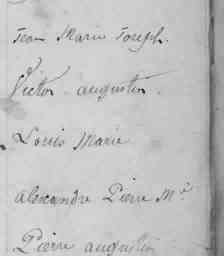 Jean Marie Joseph.
Victor augustin.
Louis Marie
alexandre Pierre M.ie
Pierre augustin